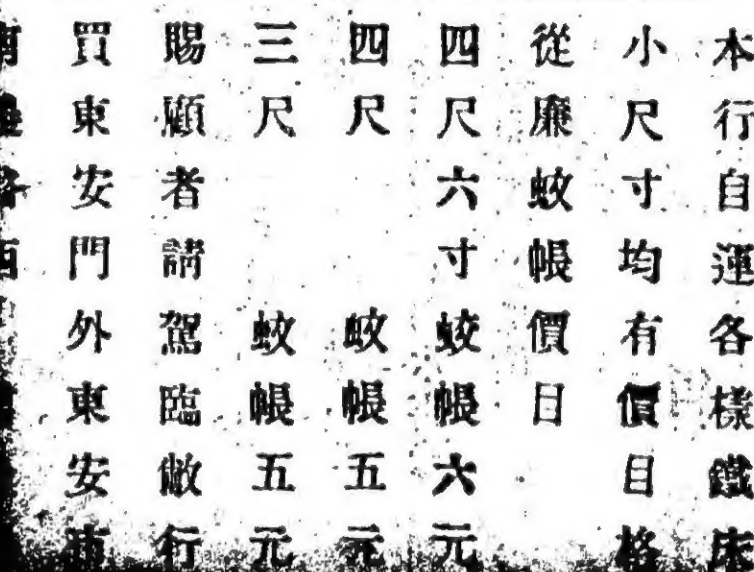 本行自運各樣鐵床
小尺寸均有價目格
從廉蚊帳價目
四尺六寸蚊帳六元
四尺蚊帳五元
三尺蚊帳五元
賜顧者請駕臨敝行
買東安門外東安市
西